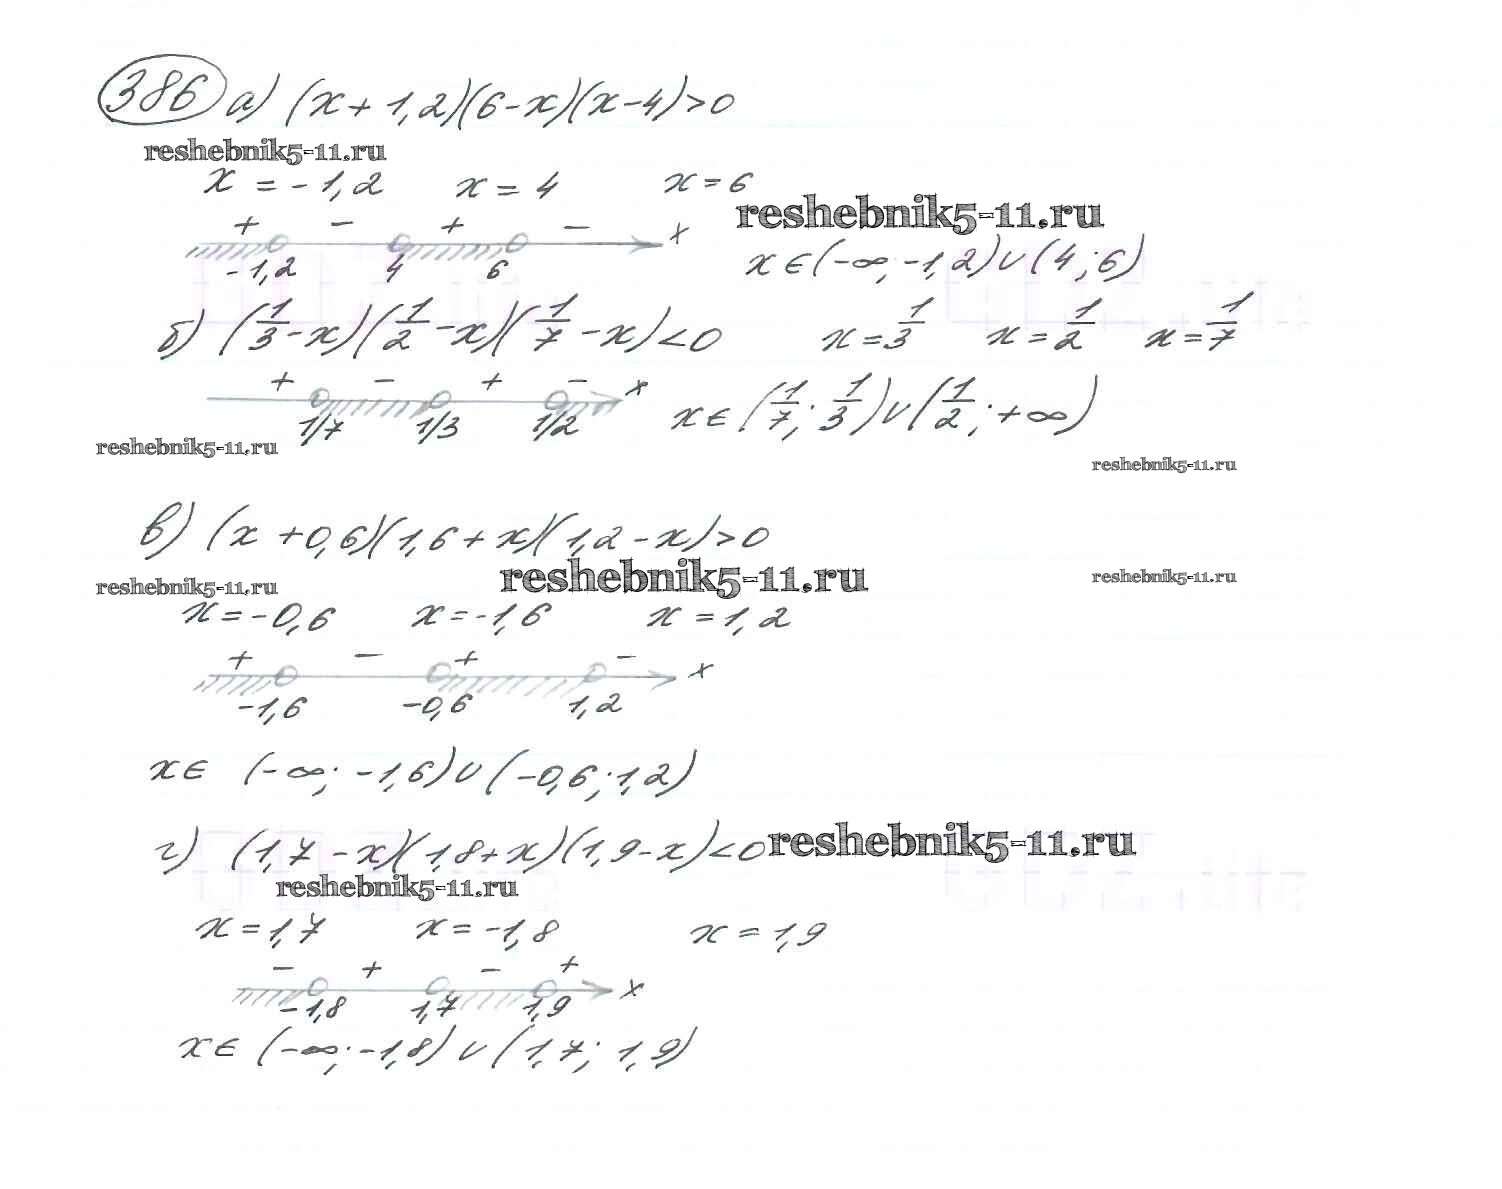 386 а) (x + 1,2)(6 - x)(x - 4) > 0
reshebnik5-11.ru
x = - 1,2 x = 4 x = 6
reshebnik5-11.ru
+ - + - x
-1,2 4 6
x ∈ (-∞; -1,2) ∪ (4; 6)
б) (1/3 - x)(1/2 - x)(1/7 - x) < 0 x = 1/3 x = 1/2 x = 1/7
+ - + - x
1/7 1/3 1/2
x ∈ (1/7; 1/3) ∪ (1/2; +∞)
reshebnik5-11.ru
reshebnik5-11.ru
в) (x + 0,6)(1,6 + x)(1,2 - x) > 0
reshebnik5-11.ru
reshebnik5-11.ru
reshebnik5-11.ru
x = -0,6 x = -1,6 x = 1,2
+ - + - x
-1,6 -0,6 1,2
x ∈ (-∞; -1,6) ∪ (-0,6; 1,2)
г) (1,7 - x)(1,8 + x)(1,9 - x) < 0
reshebnik5-11.ru
reshebnik5-11.ru
x = 1,7 x = -1,8 x = 1,9
- + - + x
-1,8 1,7 1,9
x ∈ (-∞; -1,8) ∪ (1,7; 1,9)